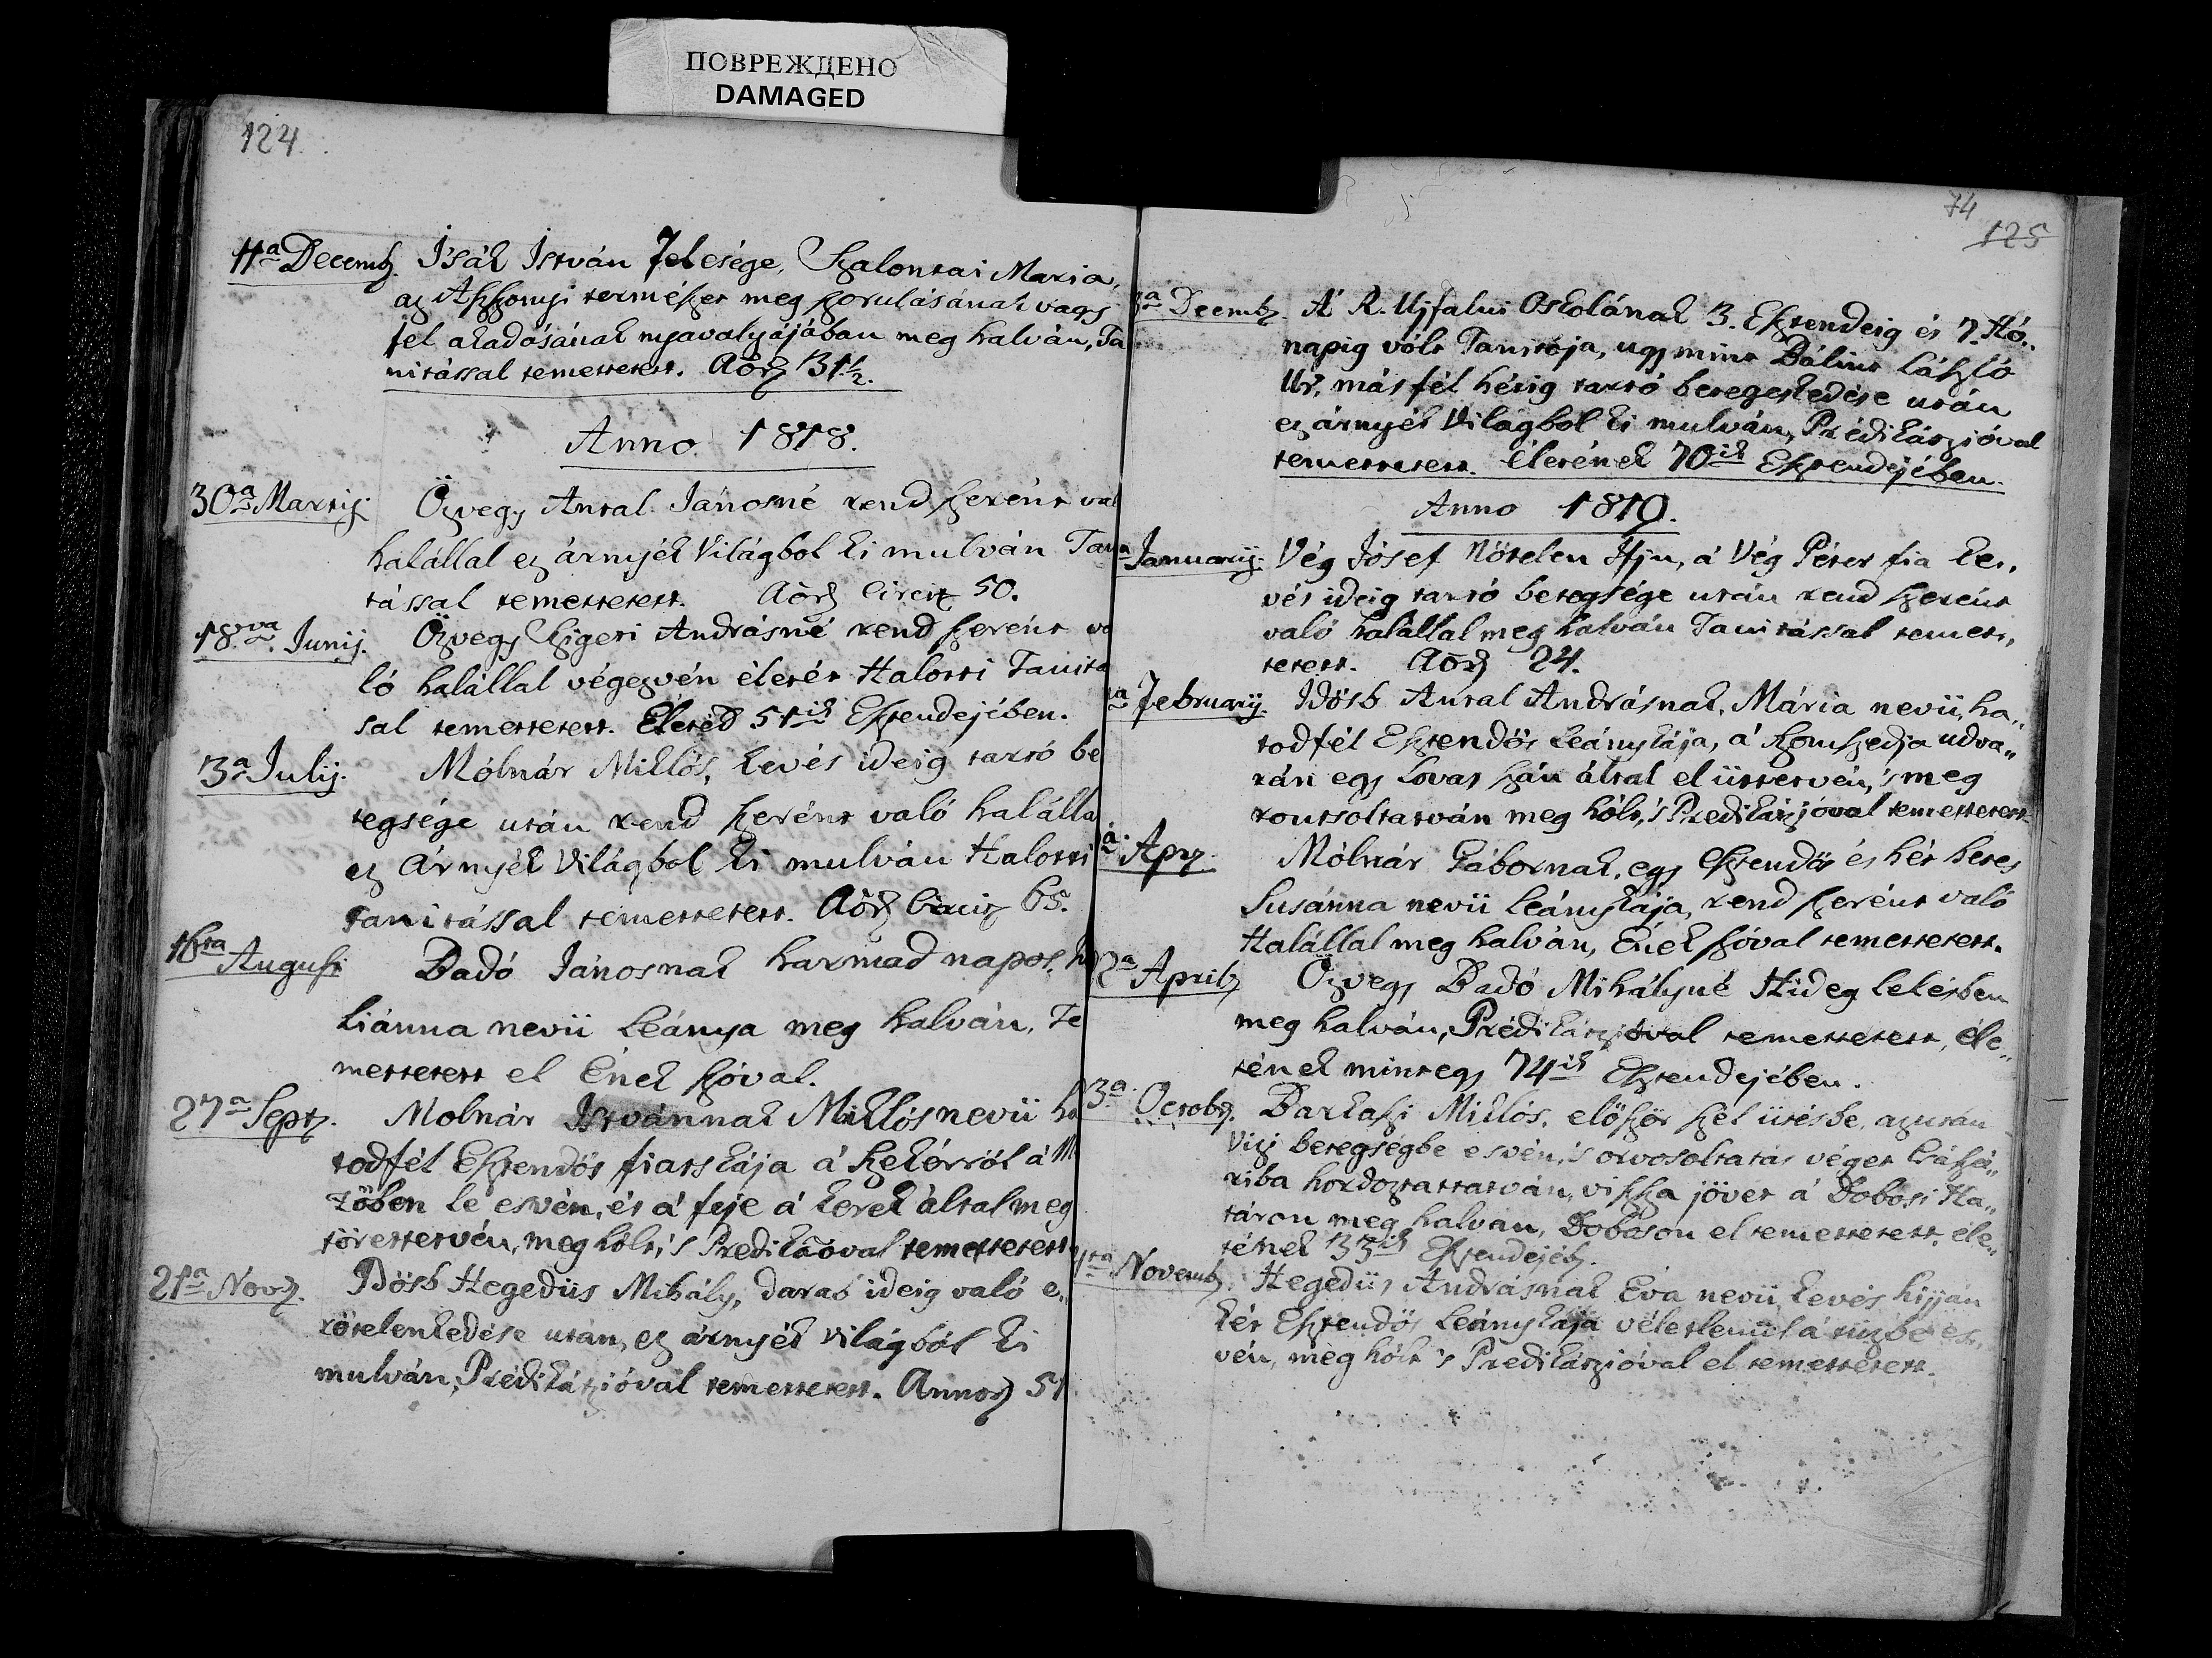 ПОВРЕЖДЕНО
DAMAGED
124.
11a Decemb. Isák István Felesége, Szalontai Maria,
az Aszszonyi termeszet meg szorulásának vagy
fel akadásának nyavalyájában meg halván, Ta
nitással temettetett. Aõr 31 1/2.
Anno 1818.
30a Martij. Özvegy Antal Jánosné rend szerént val
halállal ez árnyék Világbol ki mulván Tan
tással temettetett. Aõr circit 50.
18va Junij. Özvegy Szigeti Andrásné rend szerént va
ló halállal végezvén életét Halotti Tanita
sal temettetett. Életéd 51ik Esztendejében.
3a Julij. Mólnár Miklós, kevés ideig tartó be
tegsége után rend szerént való halálla
ez Árnyék Világbol ki mulván Halotti
tanitással temettetett. Aõr Circit 65.
16ta Augusti Badó Jánosnak harmad napos,
liánna nevü Leánya meg halván, Te
mettetett el Ének szóval.
27a Septr. Molnár Istvánnak Miklós nevü ha
todfél Esztendös fiatskája á szekérröl á M
zöben le esvén, és á feje á kerek által meg
törettetvén, meg hólt, 's Predikãoval temettetett
21a Novr. Idösb Hegedüs Mihály, darab ideig való e„
rötelenkedése után, ez árnyék világból ki
mulván, Prédikátzióval temettetett. Annor 51
74
125
3a Decemb. A' R. Ujfalui Oskolának 3. Esztendeig és 7. Hó„
napig vólt Tanitója, ugy mint Bálint László
Ur, másfél hétig tartó betegeskedése után
ez árnyék Világbol ki mulván, Prédikátzióval
temettetett. Életének 70ik Esztendejében.
Anno 1819.
a Januarij. Vég Jósef Nötelen Ifju, á Vég Péter fia ke„
vés ideig tartó betegsége után rend szerént
való halállal meg halván Tanitással temet„
tetett. Aõr 24.
a Februarij. Idösb Antal Andrásnak, Mária nevü, ha„
todfél Esztendös Leánykája, á szomszedja udva„
rán egy Lovas szán által el üttetvén, 's meg
rontsoltatván meg hólt, 's Predikátzjoval temettetett
a Apr. Mólnár Gábornak, egy Esztendös és hét hetes
Susánna nevü Leánykája, rend szerént való
Halállal meg halván, Ének szóval temettetett.
2a Aprilr Özvegy Badó Mihályné Hideg lelésben
meg halván, Prédikátzióval temettetett, éle„
tének mintegy 74ik Esztendejében.
3a Octobr. Barkaszi Miklós, elöször szél ütésbe, azután
Vizi betegségbe esvén, 's orvosoltatás véget Császá„
riba hordoztattatván, viszsza jövet á Dobosi Ha„
táron meg halvan, Doboson el temettetett, éle„
tének 33ik Esztendejéb.
1ta Novemb. Hegedüs Andrásnak Éva nevü, kevés hijján
két Esztendös Leánykája véletlenül á tüzbe es„
vén, meg hólt 's Predikátzióval el temettetett.